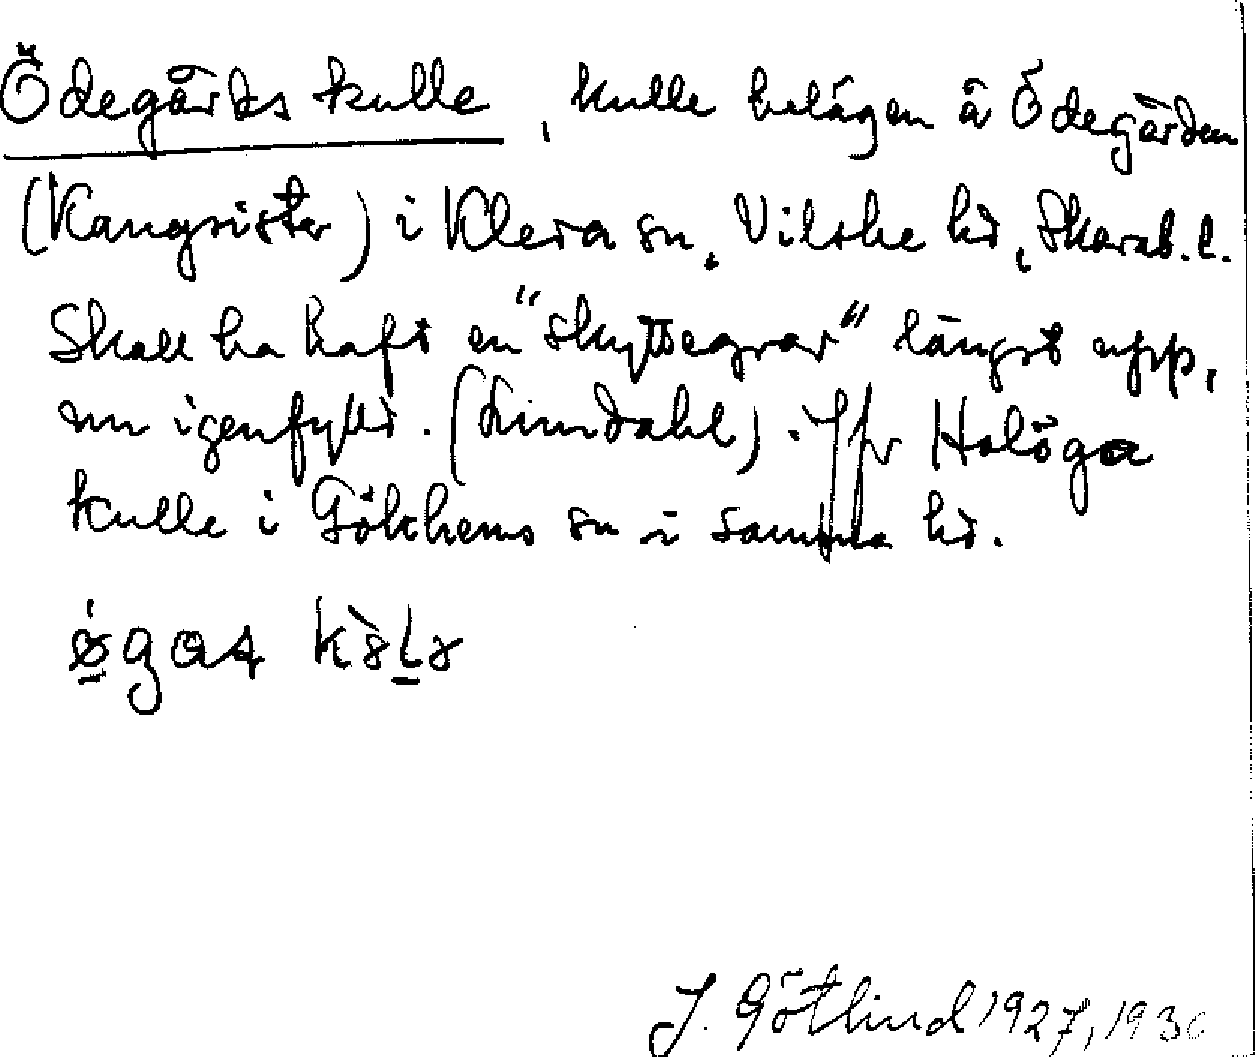 Ödegårds kulle, kulle belägen å Ödegården
(Kangrister) i Kleva sn, Vilske hd, Skarab. l.
Skall ha haft en "skyttegrav" längst upp,
nu igenfylld. (Lindahl). Jfr Holöga
kulle i Göthems sn i samma hd.
øgas
J. Götlind 1927, 1930